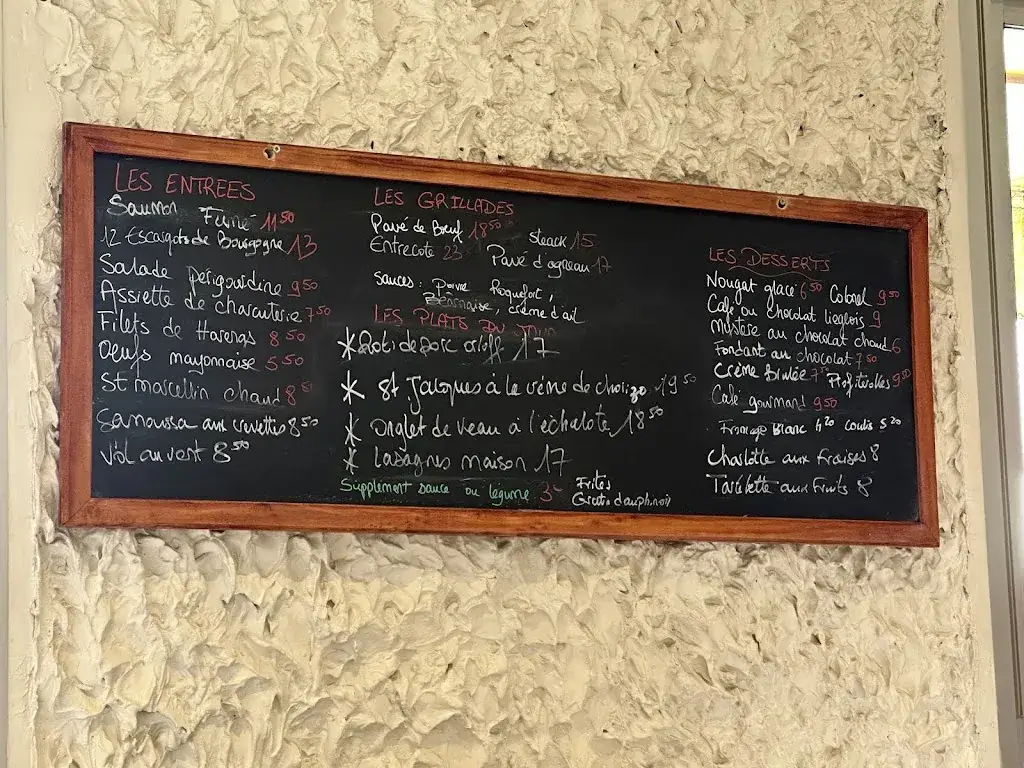 LES ENTREES
Saumon Fumé 11 50
12 Escargots de Bourgogne 13
Salade périgourdine 9 50
Assiette de charcuterie 7 50
Filets de Harengs 8 50
Oeufs mayonnaise 5 50
St marcellin chaud 8
Samoussa aux crevettes 8 50
Vol au vent 8 50
LES GRILLADES
Pavé de Bœuf 18 50
Steack 15
Entrecote 23
Pavé d'agneau 17
Sauces : Poivre Roquefort,
Béarnaise, crème d'ail
LES PLATS DU JOUR
* Roti de porc orloff 17
* St. Jacques à la crème de chorizo 19 50
* onglet de veau à l'échalote 18 50
* Lasagnes maison 17
Supplément sauce ou légume 3
Frites
Gratin dauphinois
LES DESSERTS
Nougat glacé 6 50 Colonel 9 50
Café ou chocolat liegeois 9
Mystère au chocolat chaud 6
Fondant au chocolat 7 50
Crème brulée 7 Profiteroles 9 50
Café gourmand 9 50
Fromage Blanc 4 20 coulis 5 20
Charlotte aux Fraises 8
Tartelette aux Fruits 8